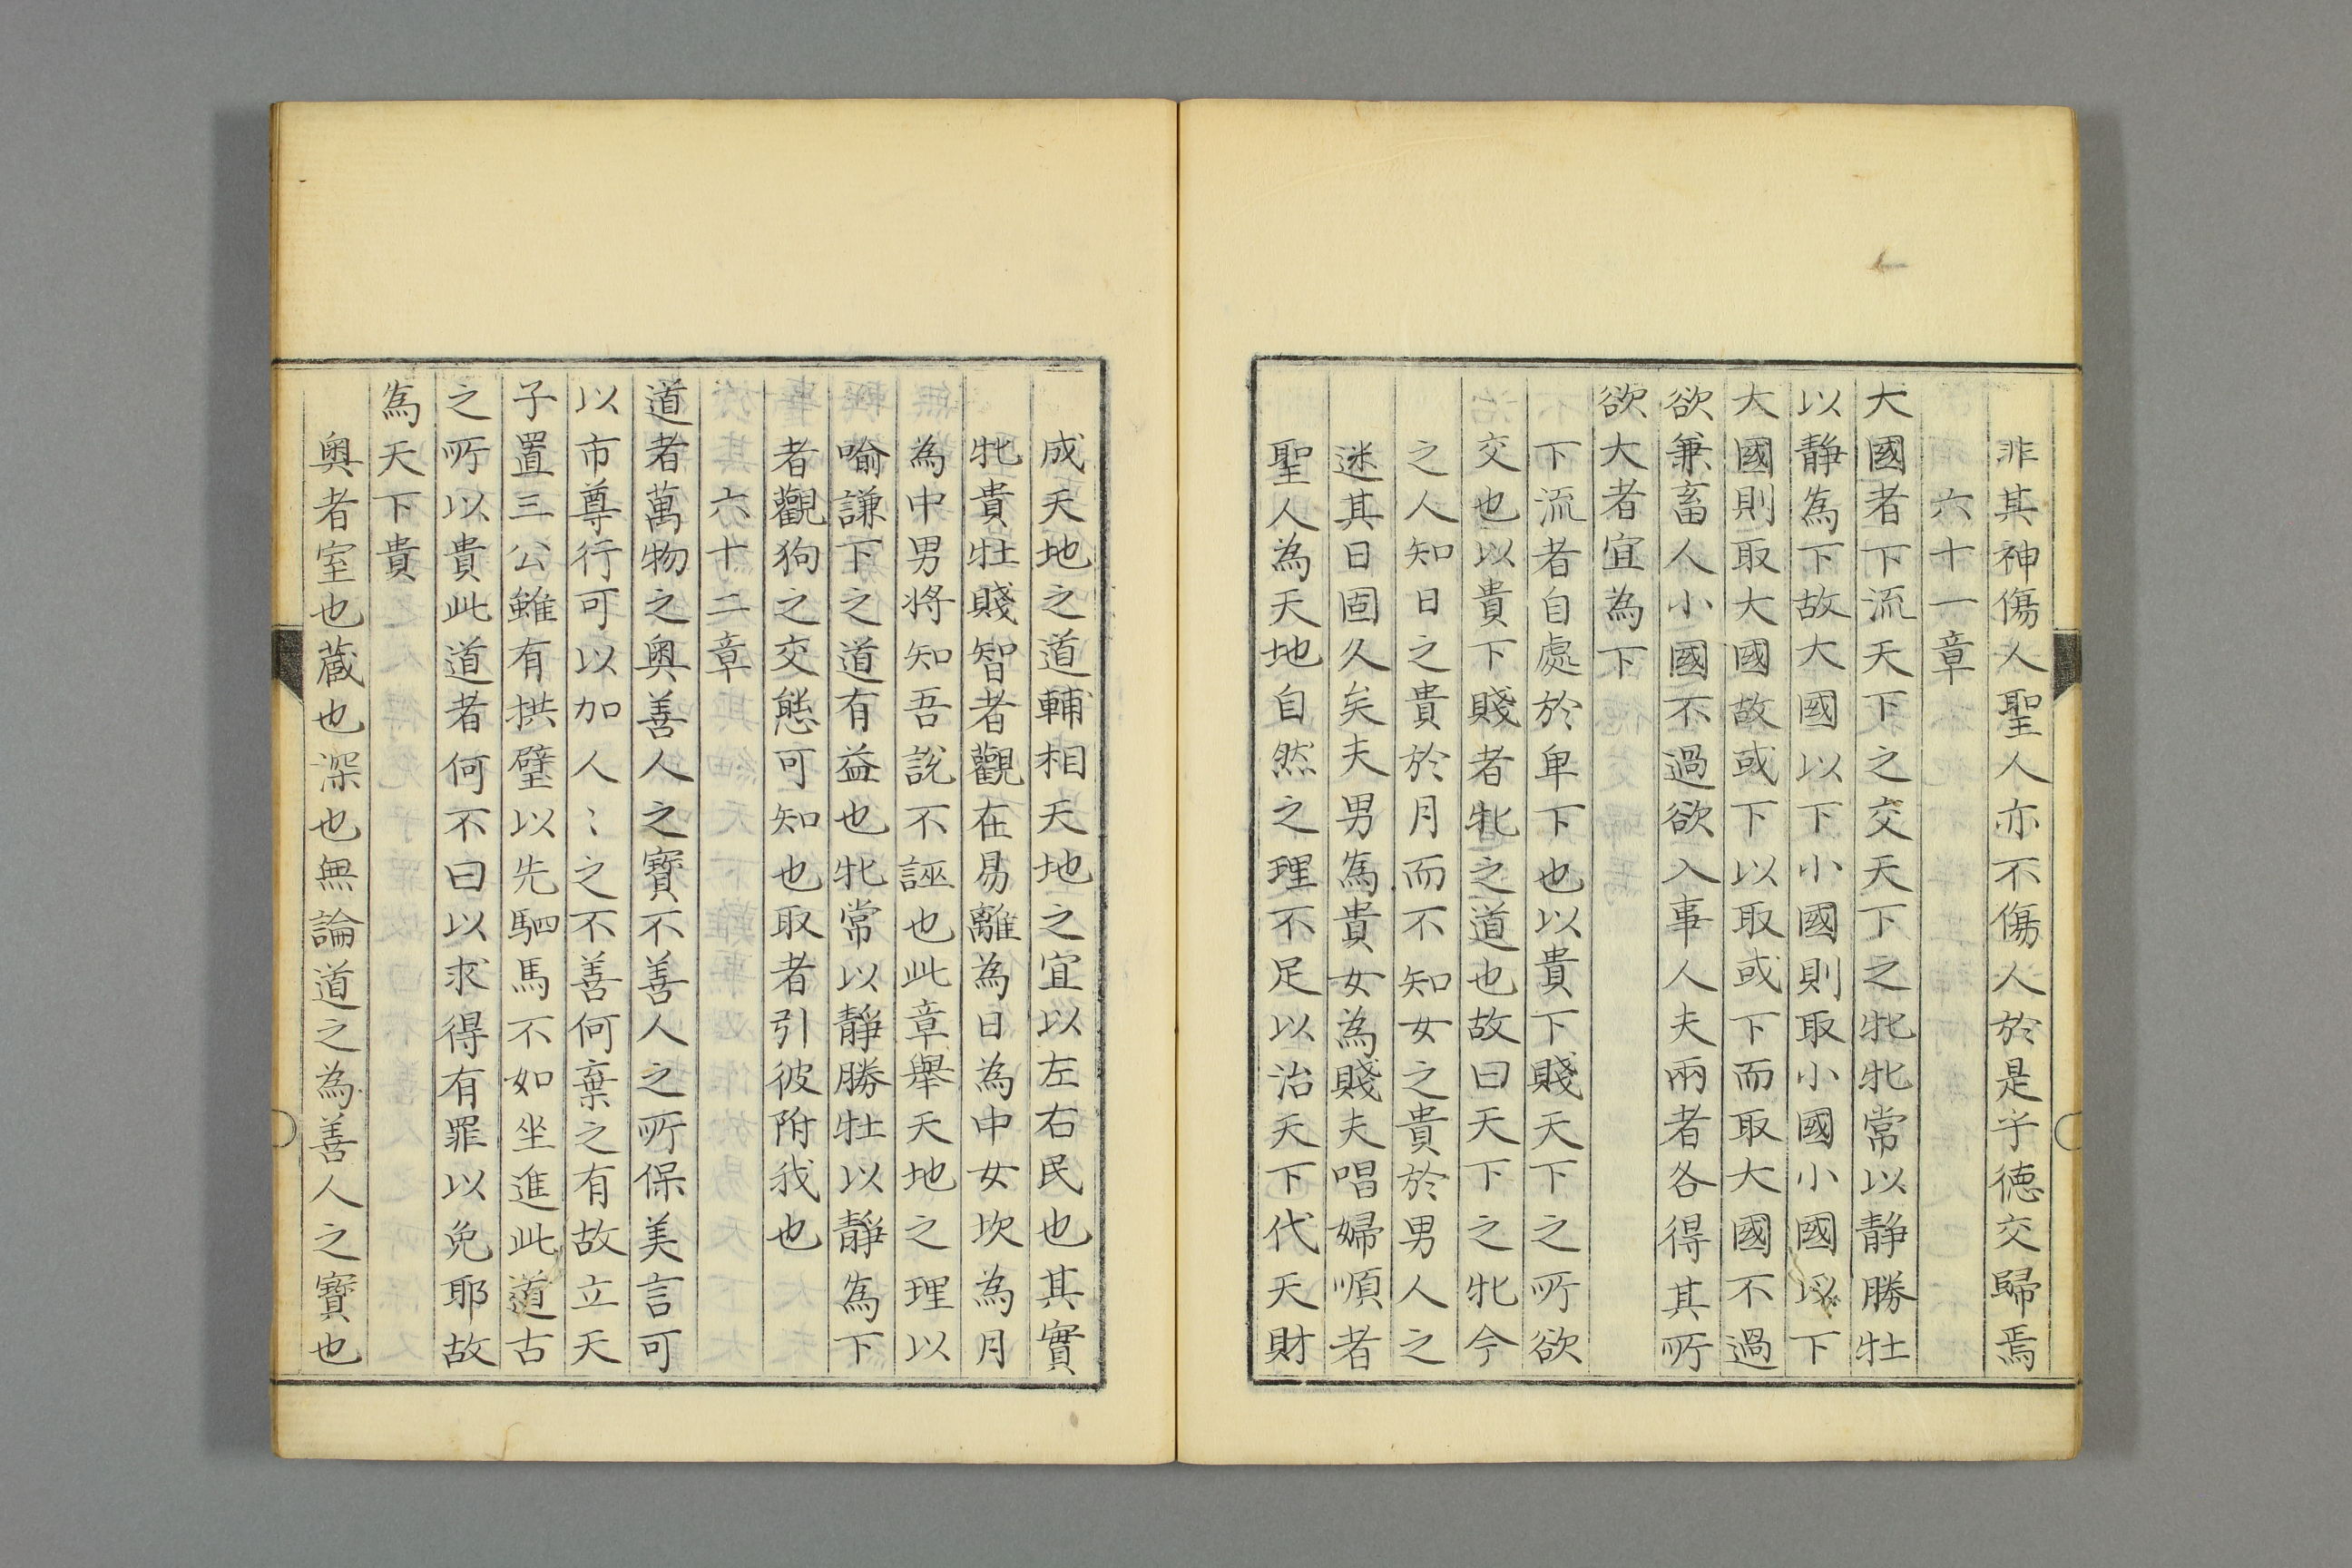 非其神傷人聖人亦不傷人於是乎徳交歸焉
六十一章
大國者下流天下之交天下之牝牝常以靜勝牡
以靜為下故大國以下小國則取小國小國以下
大國則取大國故或下以取或下而取大國不過
欲兼畜人小國不過欲入事人夫兩者各得其所
欲大者宜為下
下流者自處於卑下也以貴下賤天下之所欲
交也以貴下賤者牝之道也故曰天下之牝今
之人知日之貴於月而不知女之貴於男人之
迷其日固久矣夫男為貴女為賤夫唱婦順者
聖人為天地自然之理不足以治天下代天財
成天地之道輔相天地之宜以左右民也其實
牝貴牡賤智者觀在易離為日為中女坎為月
為中男将知吾説不誣也此章舉天地之理以
喻謙下之道有益也牝常以靜勝牡以靜為下
者觀狗之交態可知也取者引彼附我也
六十二章
道者萬物之奥善人之寶不善人之所保美言可
以市尊行可以加人〻之不善何棄之有故立天
子置三公雖有拱璧以先駟馬不如坐進此道古
之所以貴此道者何不曰以求得有罪以免耶故
為天下貴
奥者室也蔵也深也無論道之為善人之寶也